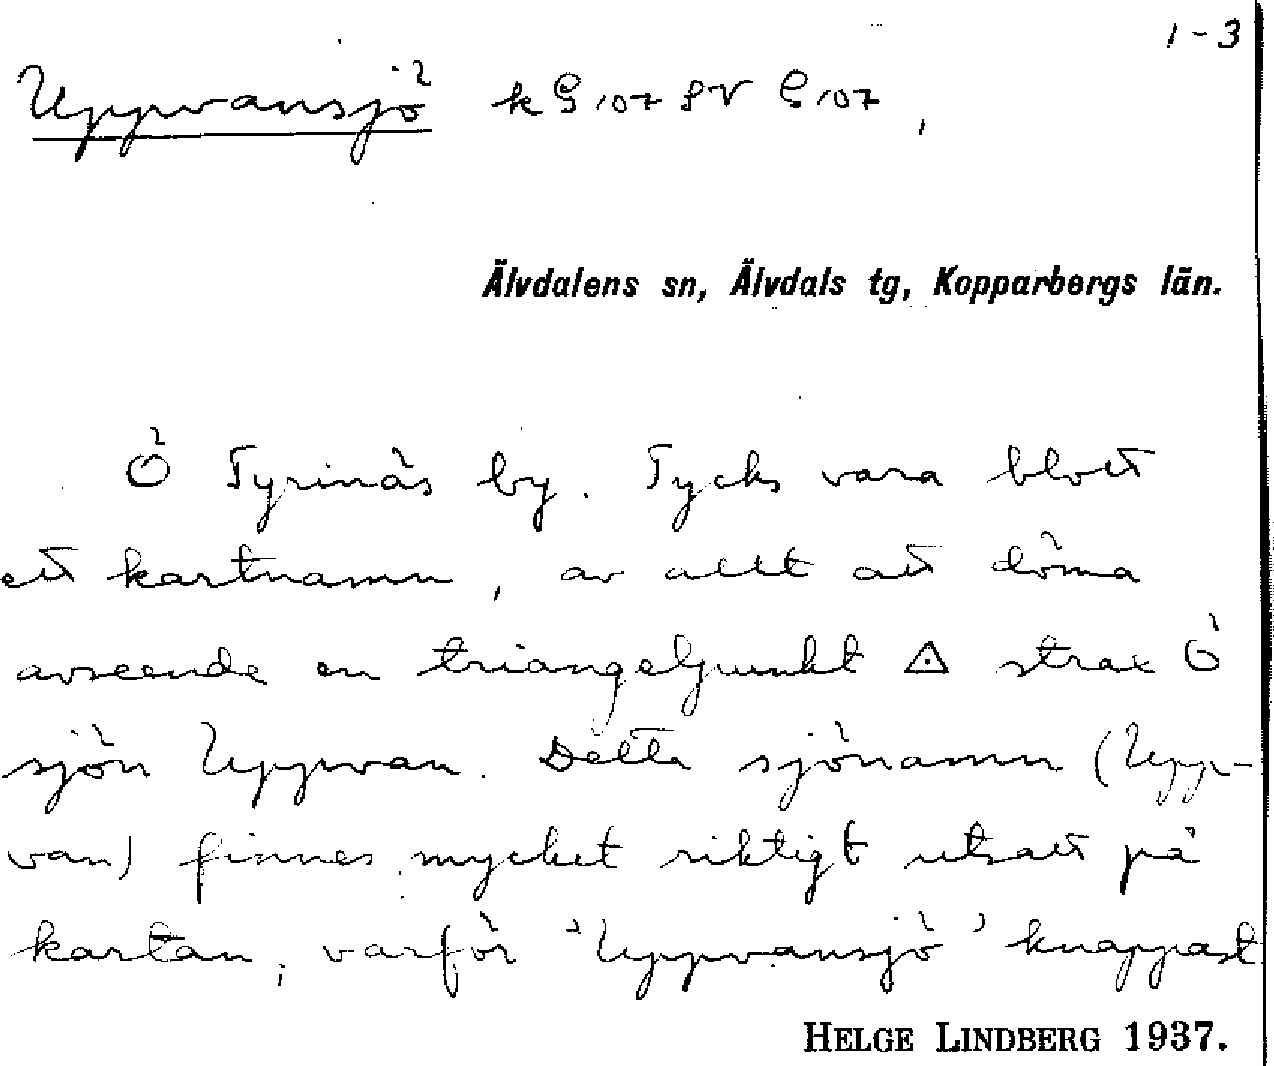 1-3
Uppvansjö k G 107 SV G 107,
Älvdalens sn, Älvdals tg, Kopparbergs län.
Ö Tyrinäs by. Tycks vara blott
ett kartnamn, av allt att döma
avseende en triangelpunkt strax Ö
sjön Uppvan. Detta sjönamn (Upp-
van) finnes mycket riktigt utsatt på
kartan, varför 'Uppvansjö' knappast
HELGE LINDBERG 1937.